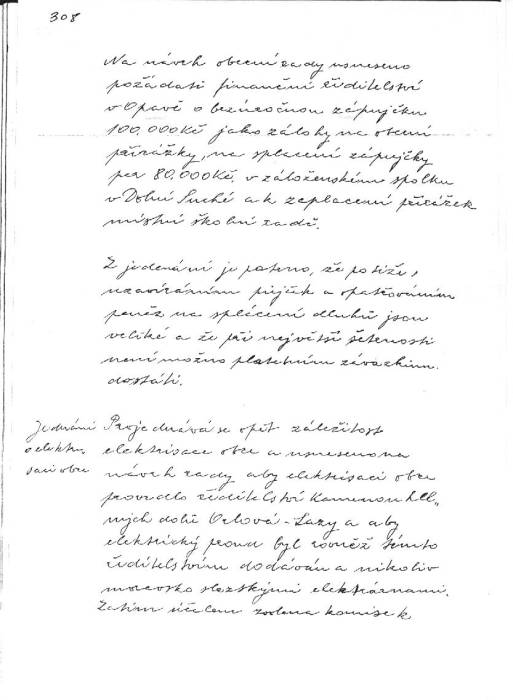 308
Na návrh obecní rady usneseno
požádati finanční ředitelství
v Opavě o bezúročnou zápujčku
100.000Kč jako zálohy na obecní
přirážky, na splacení zápujčky
per 80.000Kč, v záloženském spolku
v Dolní Suché a k zaplacení přirážek
místní školní radě.
Z jednání je patrno, že potíže,
uzavíráním pujček a opatřováním
peněz na splácení dluhů jsou
veliké a že při největší šetrnosti
není možno platebním závazkům
dostáti.
Jednání
o elektri
saci obce
Projednává se opět záležitost
elektrisace obce a usneseno na
návrh rady aby elektrisaci obce
provedlo ředitelství Kamenouhel„
ných dolů Orlová-Lazy a aby
elektrický proud byl rovněž tímto
ředitelstvím dodáván a nikoliv
moravsko slezskými elektrárnami.
Za tím účelem zvolena komise k